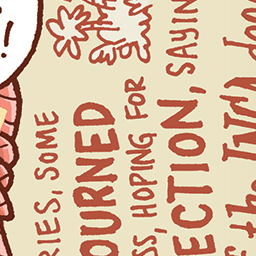 RIES, SOME
OURNED
SS, HOPING FOR
ECTION, SAYIN
f the INCA doo